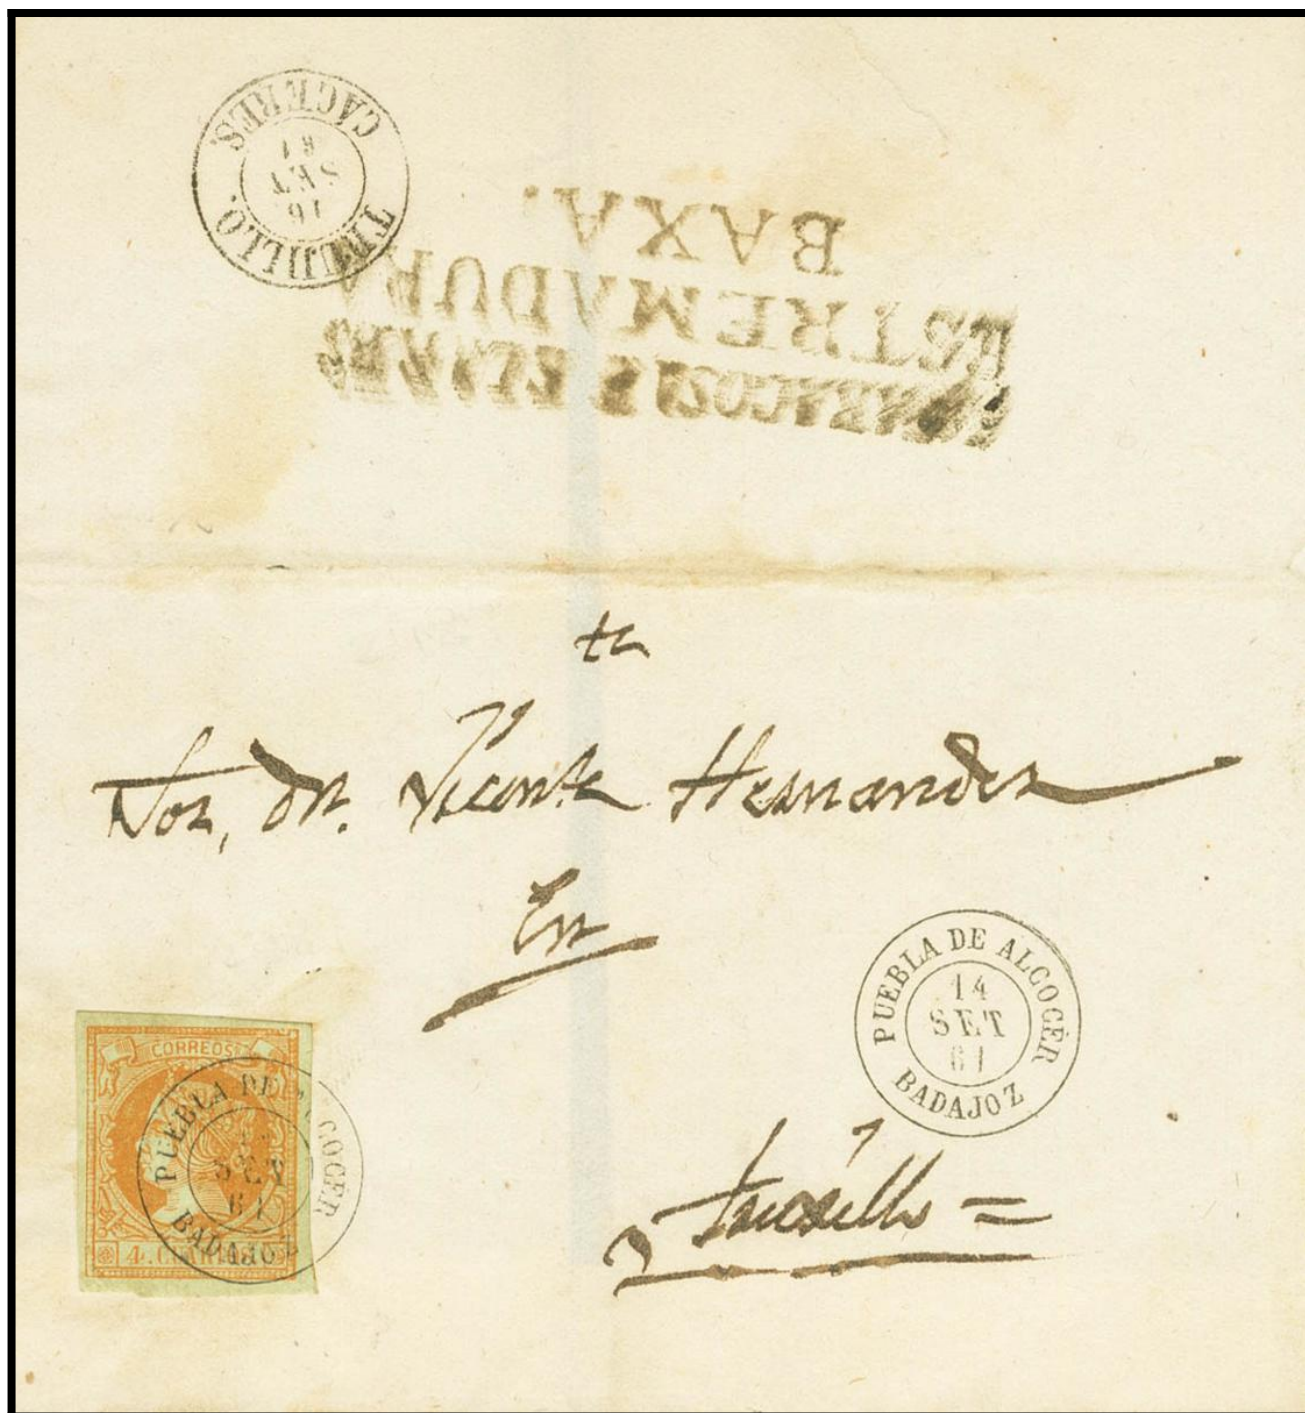 TRUJILLO.
CACERES.
16
SET
61
ESTREMADURA
BAXA.
Sor, Dn. Vicente Hernandez
En
PUEBLA DE ALCOCÉR
14
SET
61
BADAJOZ
Trucxillo =
CORREOS
PUEBLA DE ALCOCER
SET
61
BADAJOZ
4. CUARTOS